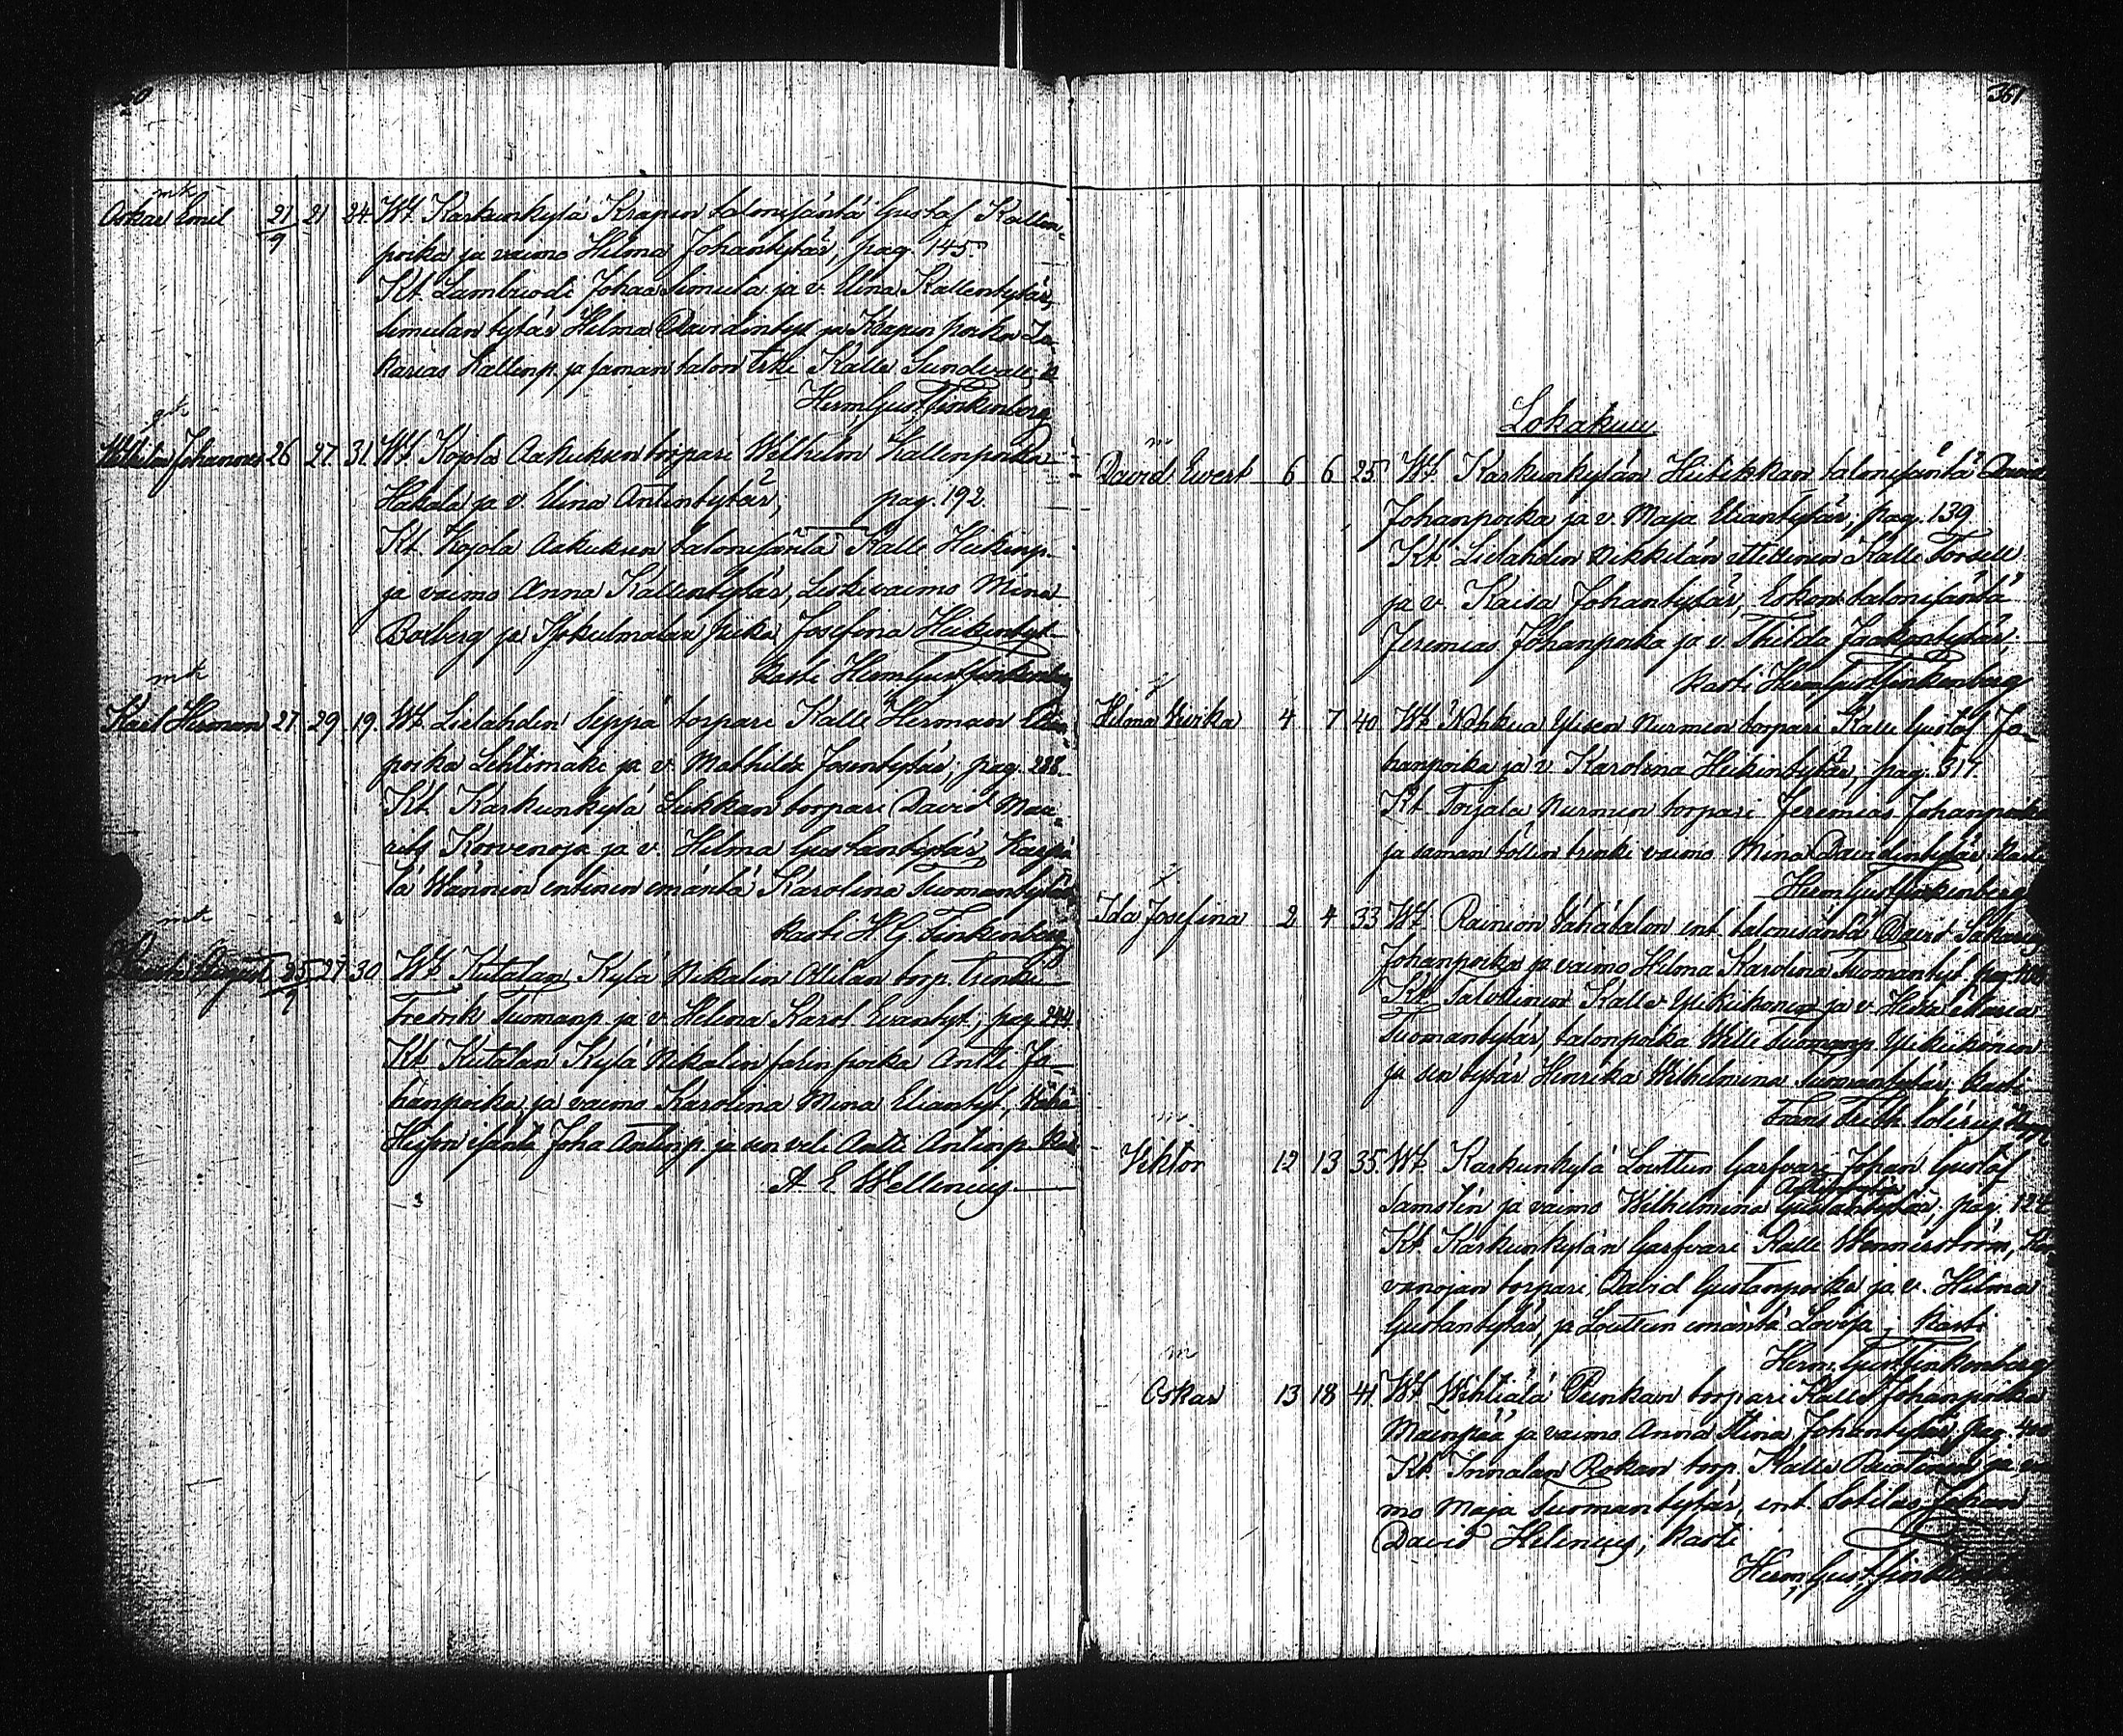 mk
Oskar Emil 21/9 21 24 Wt. Karkunkylä Krapin talonisäntä Gustaf Kallen-
poika ja vaimo Helma Johantytär, pag. 145.
Kt. Lambuodi Johan Simula ja v. Elina Kallentytär,
Simulan tytär Helma Davidintyt ja Krapin poika Za-
karias Kallenp. ja saman talon trki Kalle Sundvall,
Herm Gust Finkenberg
Wilhelm Johannes 26 27 31 Wt. Kojola Aakuksen torpari Wilhelm Kallenpoika
Hakala ja v. Elina Antintytär, pag. 192.
Kt. Kojola Aakuksen talonisäntä Kalle Heikinp.
ja vaimo Anna Kallentytär, Leskivaimo Mina
Boxberg ja piika Josefina Heikintyt
Kasti Herm Gust Finkenberg
mk
Karl Herman 27 29 19. Wt. Lielahden Seppä torpari Kalle Herman
poika Lehtimäki ja v. Mathilda Josentytär; pag. 288.
Kt. Karkunkylä Liukkan torpari David Mau-
rits Korvenoja ja v. Helma Gustantytär, Karpi
lä Wännin entinen emäntä Karolina Tuomantytär
Kasti H G Finkenberg
mk
August 25/9 27 30. Wt. Kutalan Kylä Nikalin Ollilan torp. trenki
Fredrik Tuomanp. ja v. Helena Karol Evantyt; pag 244
Kt. Kutalan Kylä Nikalin poika Antti Jo-
hanpoika, ja vaimo Karolina Mina Eliantyt,
isäntä Joha Antinp. ja sen veli Antti Antinp.
A E Wellenius
351
Lokakuu
m
David Evert 6 6 25 Wt. Karkunkylän talonisäntä
Johanpoika ja v. Maja Eliantytär; pag. 139
Kt. Lielahden Nikkilän itellinen Kalle Forsell
ja v. Kaisa Johantytär, talonisäntä
Jeremias Johanpoika ja v. Thilda Jaakontytär,
Kasti Herm Gust Finkenberg
Helena Ulrika 4 7 40 Wt. Nohkua Ylisen Nurmen torpari Kalle Gustaf Jo-
hanpoika ja v. Karolina Heikintytär, pag. 317.
Kt. Torjala Nurmen torpari Jeremias Johanpoika
ja saman tilin trenki vaimo Mina Davidintytär Kasti
Herm Gust Finkenberg
Ida Josefina 2 4 33 Wt. Rainion Vähätalon ent. talonisäntä David
Johanpoika ja vaimo Helma Karolina Tuomantyt
Kt. Talollinen Kalle Ylikikonen ja v. Maria
Tuomantytär, talonpoika Wille Tuomanp. Ylikikonen
ja sen tytär Henrika Wilhelmina Tuomantytär, Kasti
Frans
m
Viktor 12 13 35 Wt. Karkunkylä Louttun Garfvari Johan Gustaf
Samolin ja vaimo Wilhelmina pag. 124
Kt. Karkunkylän Garfvari Kalle Wennerström, Kor
vanojan torpari David Gustanpoika ja v. Helma
Gustantytär, ja Louttun emäntä Loviisa, Kasti
Herm. Gust Finkenberg
m
Oskar 13 18 41. Wt. torpari Kalle Johanpoika
Mäenpää ja vaimo Anna Stina Johantytär, pag.
Kt. Innalan Rokan torp. Kalle
mo Maja Tuomantytär, ent. Sotilas Johan
David Helenius; Kasti
Herm Gust Finkenberg